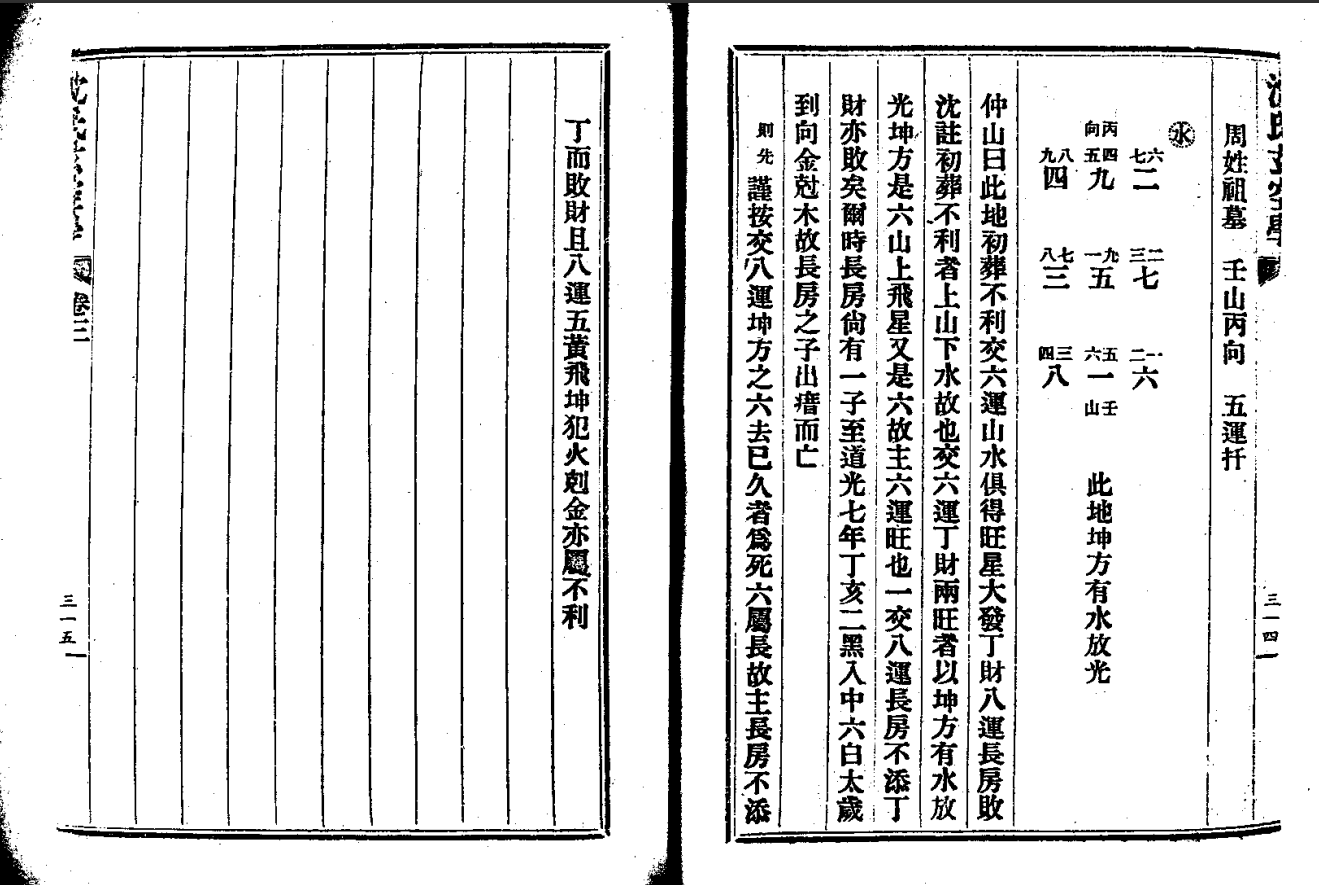 沈氏玄空學
三一四
周姓祖墓　壬山丙向　五運扦
水
六七 二　二三 七　一二 六
丙向 四五 九　九一 五　五六 一 壬山
八九 四　七八 三　三四 八
此地坤方有水放光
仲山曰此地初葬不利交六運山水俱得旺星大發丁財八運長房敗
沈註初葬不利者上山下水故也交六運丁財兩旺者以坤方有水放
光坤方是六山上飛星又是六故主六運旺也一交八運長房不添丁
財亦敗矣爾時長房尙有一子至道光七年丁亥二黑入中六白太歲
到向金尅木故長房之子出痦而亡
則先 謹按交八運坤方之六去已久者爲死六屬長故主長房不添
丁而敗財且八運五黃飛坤犯火剋金亦屬不利
卷三
三一五